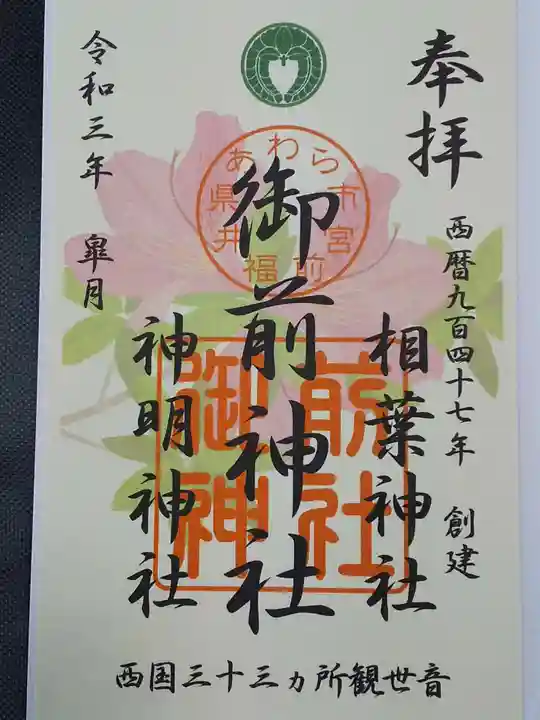 奉拝
西暦九百四十七年 創建
相葉神社
御前神社
神明神社
令和三年 皐月
福井県あわら市宮前
御前神社
西国三十三ヵ所観世音